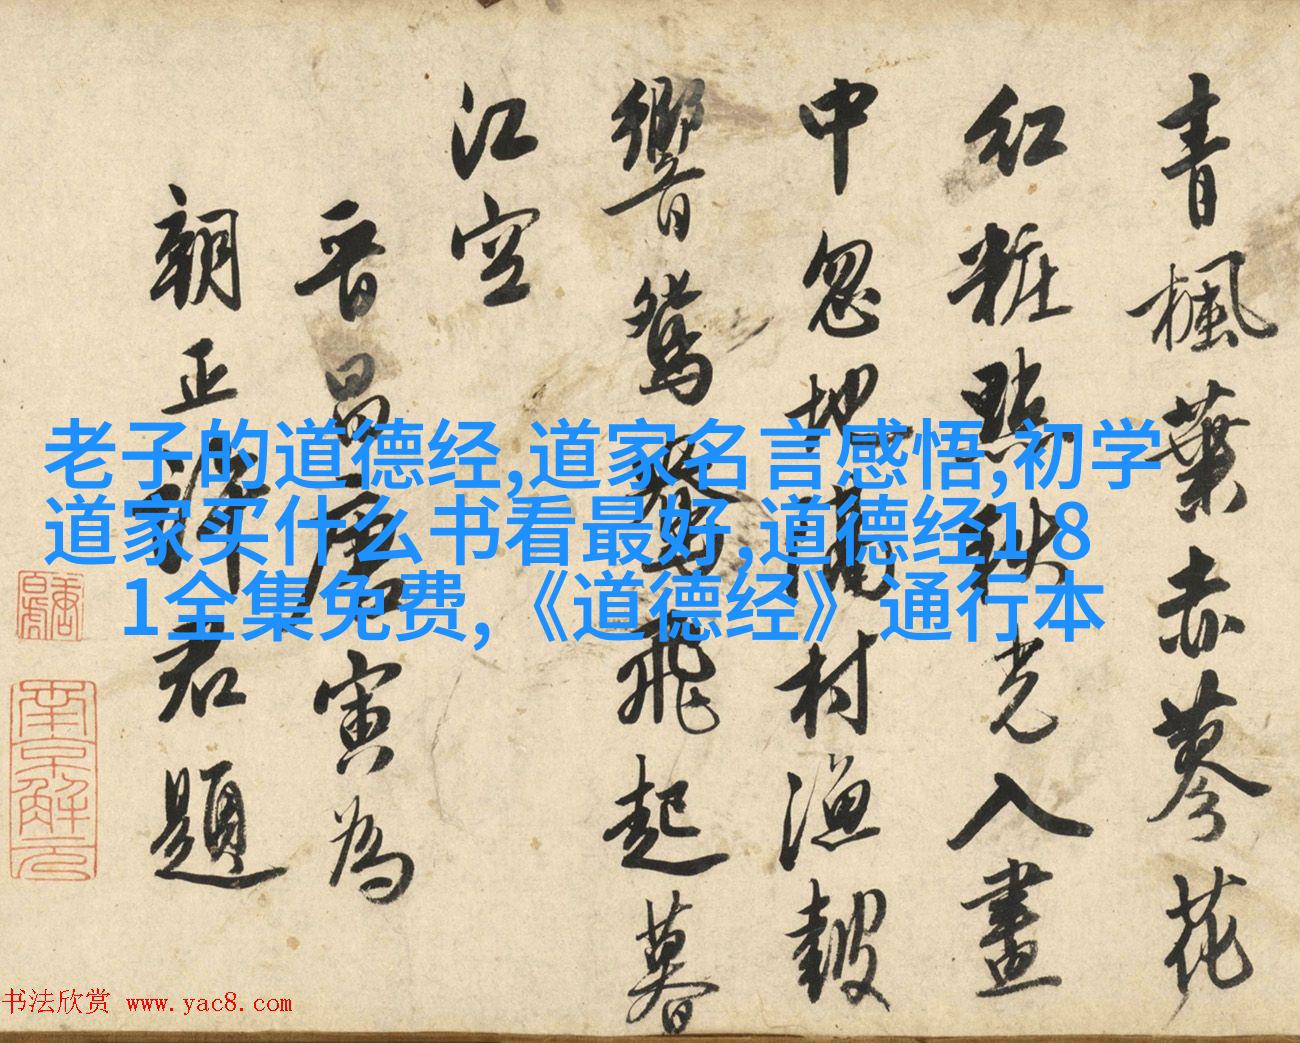 青楓葉赤蓼花
紅粧點秋光入畫
中忽地隔村漁鼓
響鴛鴦飛起暮
江空
晋昌唐寅為
朝正君題
南京解元
老子的道德经,道家名言感悟,初学
道家买什么书看最好,道德经1 8
1全集免费,《道德经》通行本
书法欣赏 www.yac8.com